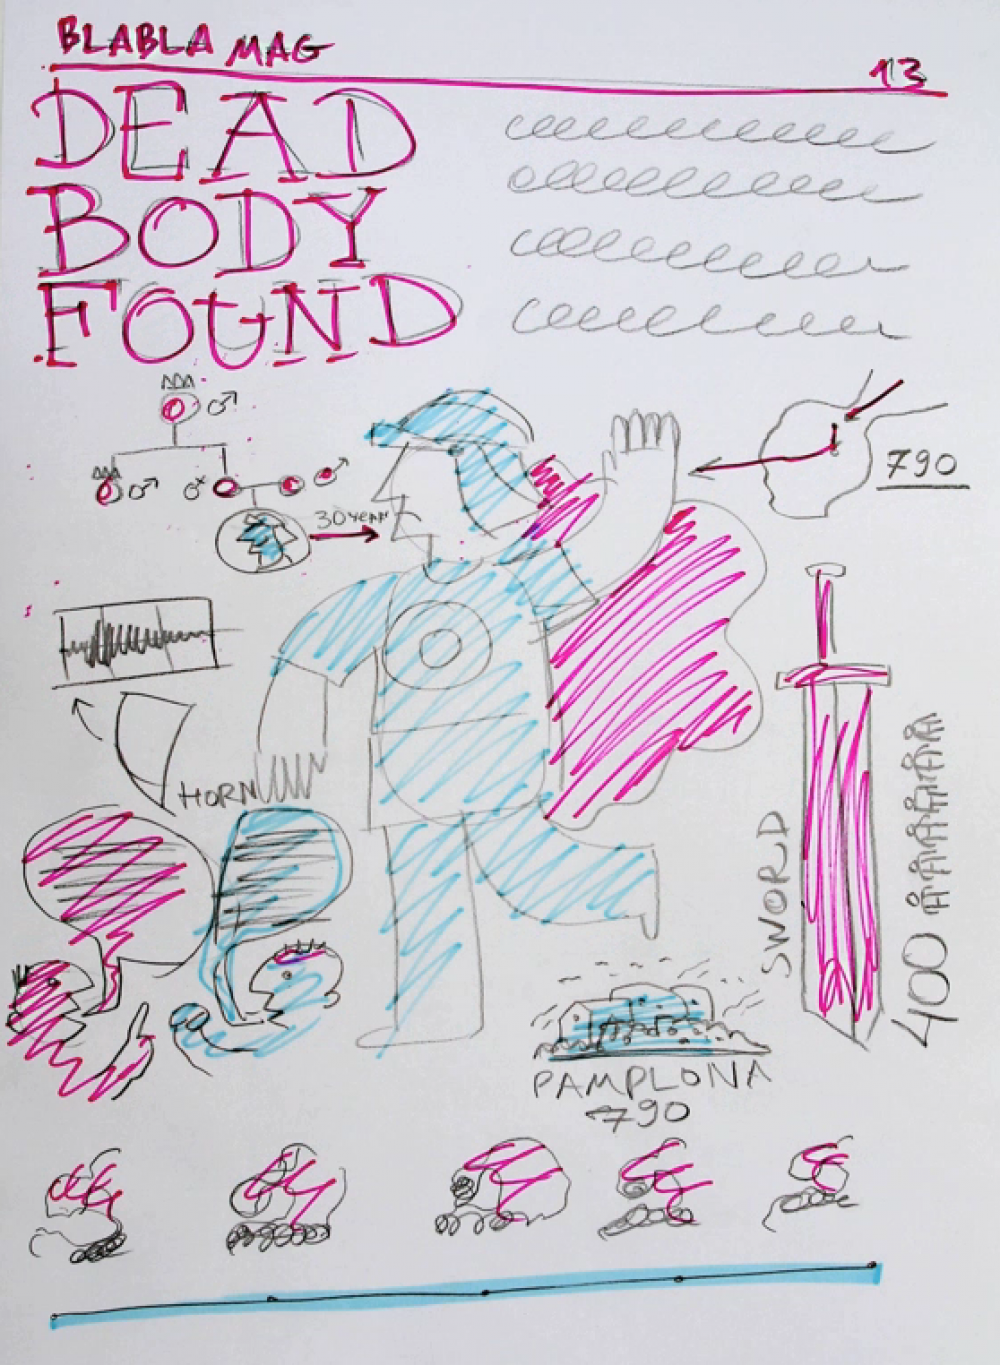 BLABLA MAG
13
DEAD
BODY
FOUND
30 YEARS
790
HORN
SWORD
400
PAMPLONA
790